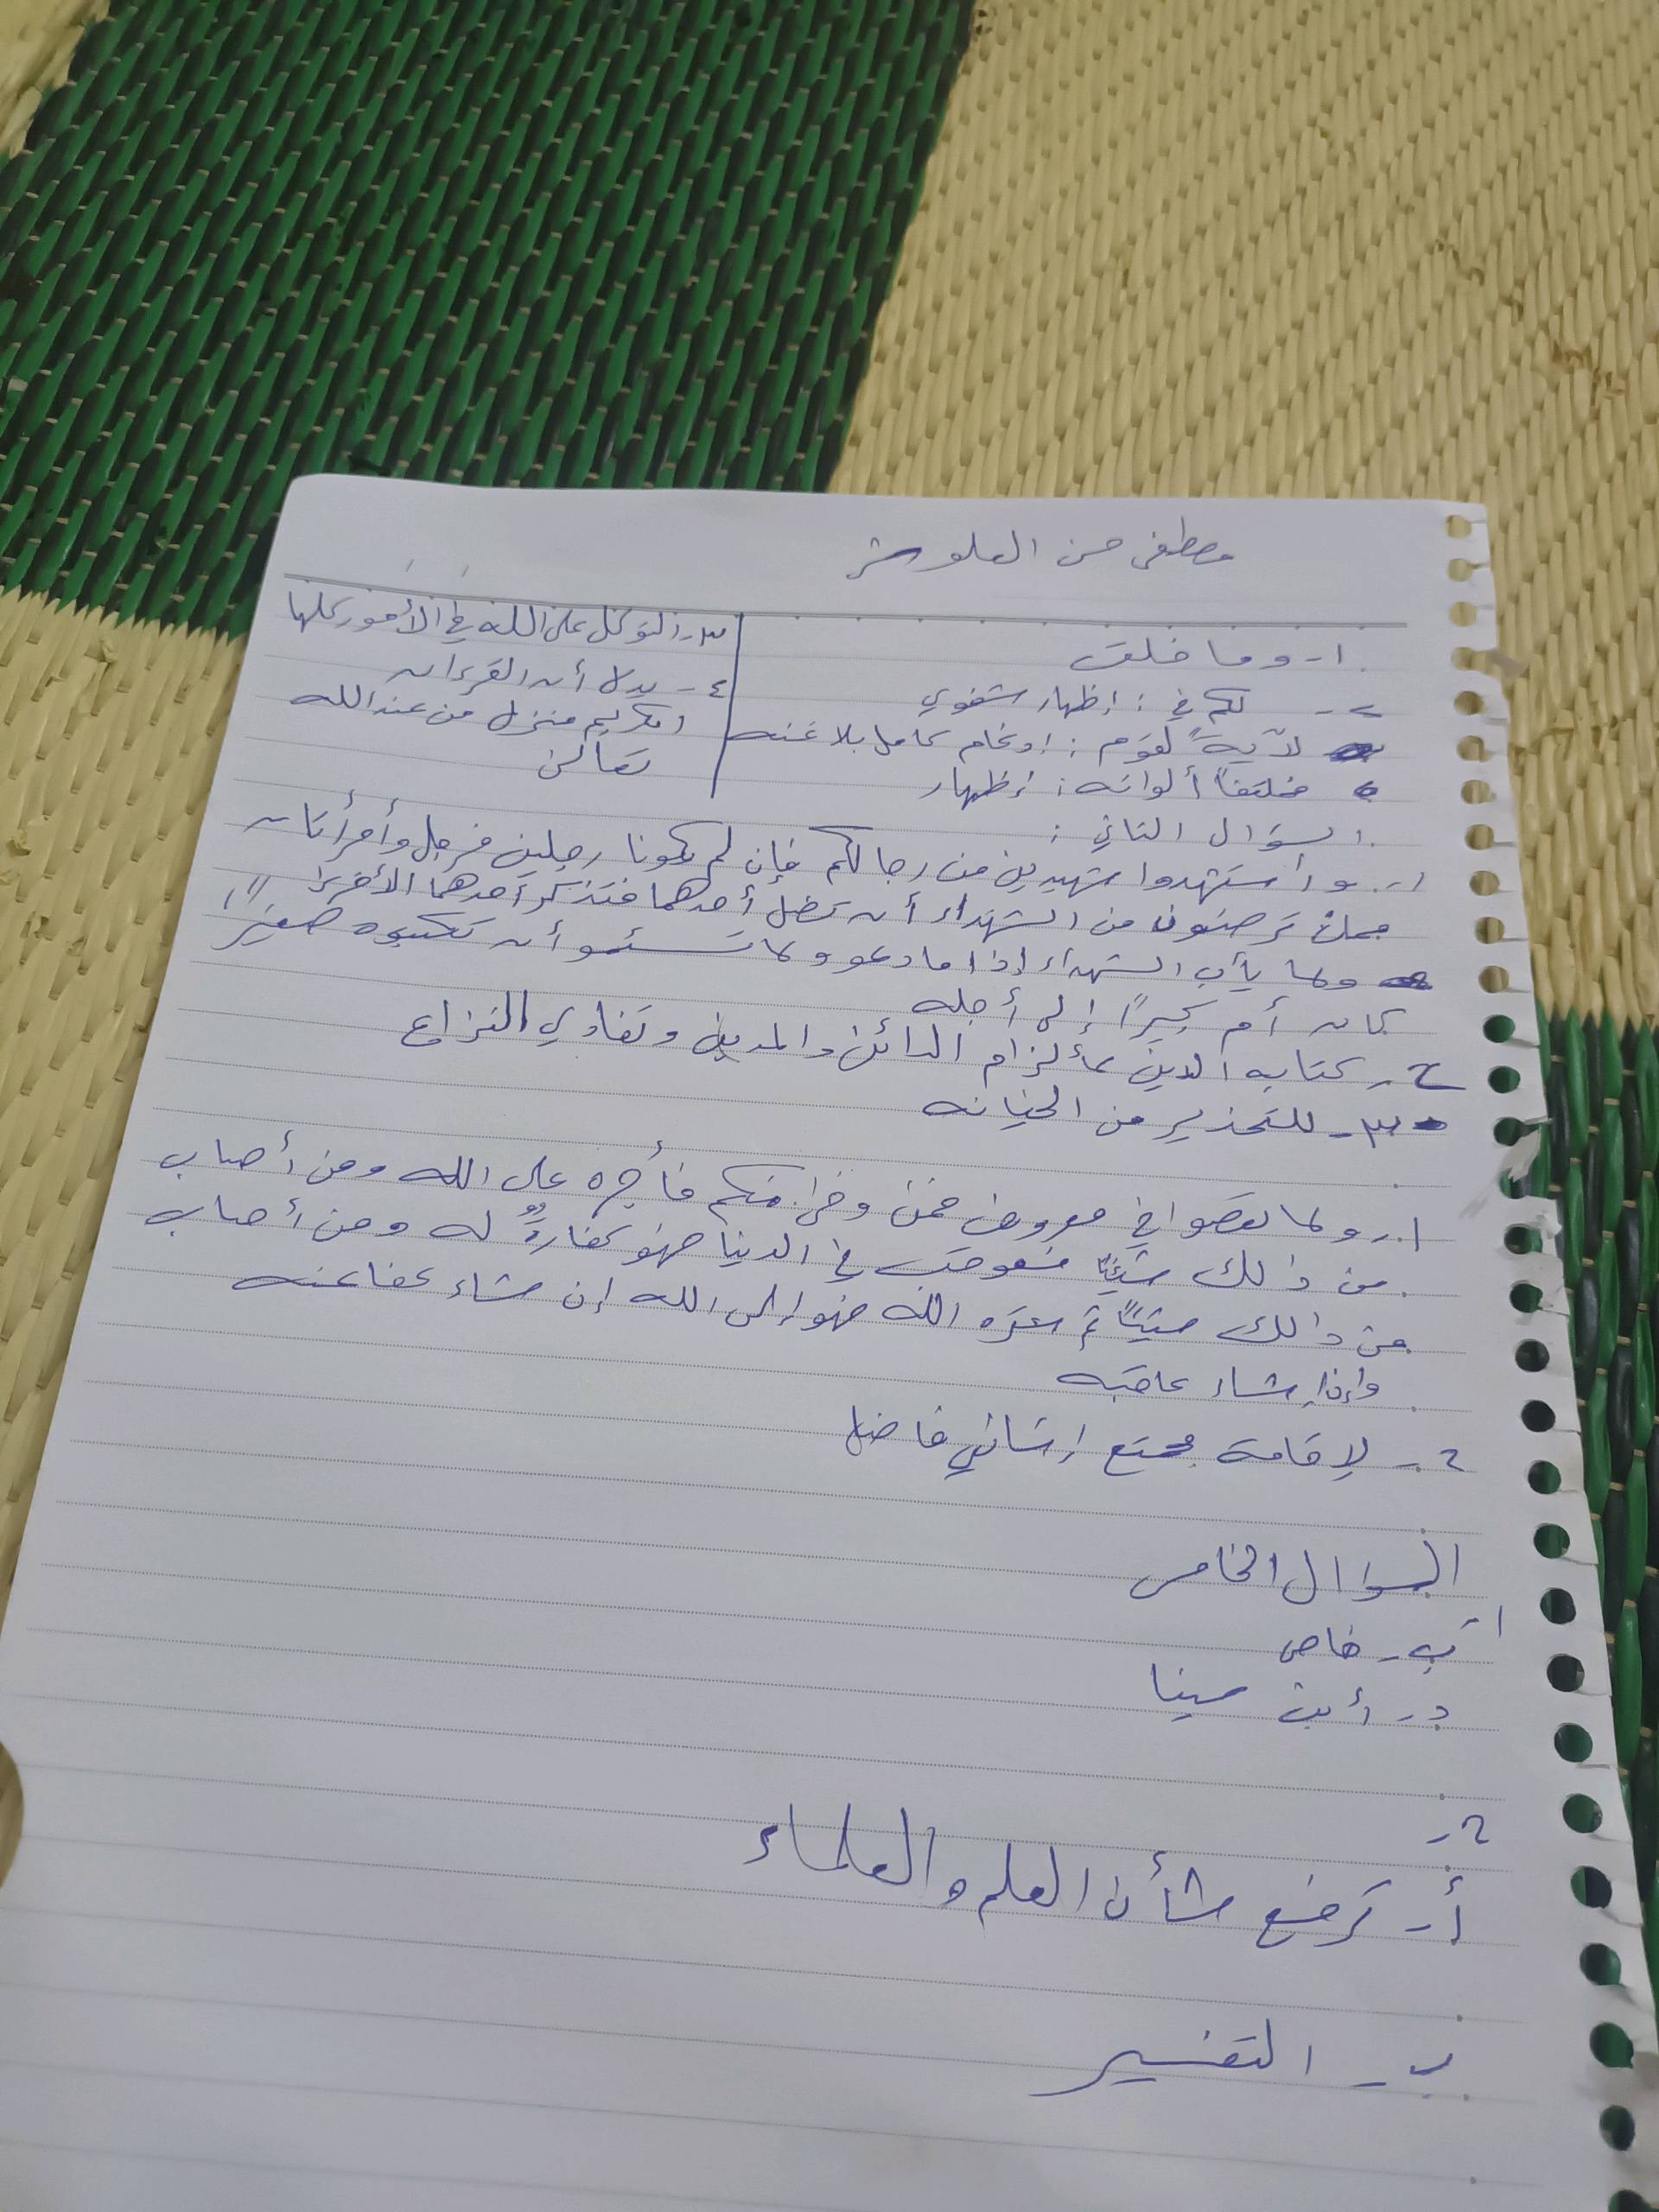 مصطفى حسن العلوش
١- وما خلق
٢- لكم في : إظهار شفوي
لآيةً لقوم : إدغام كامل بلا غنه
مختلفاً ألوانه : إظهار
٣- التوكل على الله في الأمور كلها
٤- يدل أن القرءان
الكريم منزل من عند الله
تعالى
السؤال الثاني :
١- واستشهدوا شهيدين من رجالكم فإن لم يكونا رجلين فرجل وأمرأتان
ممن ترضون من الشهداء أن تضل أحدهما فتذكر أحدهما الأخرى
ولا يأب الشهداء إذا ما دعو ولا تسئمو أن تكتبوه صغيراً
كان أم كبيراً إلى أجله
٢- كتابه الدين لألزام الدائن والمدين وتفادي النزاع
٣- للتحذير من الخيانه
١- ولا تعصوا في معروف فمن وفى منكم فأجره على الله ومن أصاب
من ذلك شيئاً فعوقب في الدنيا فهو كفارةٌ له ومن أصاب
من ذالك شيئاً ثم ستره الله فهو إلى الله إن شاء عفا عنه
وإن شاء عاقبه
٢- لإقامة مجتمع إنساني فاضل
السؤال الخامس
١-
ب- خاص
د- أبن سينا
٢-
أ- ترفع شأن العلم والعلماء
ب- التفسير